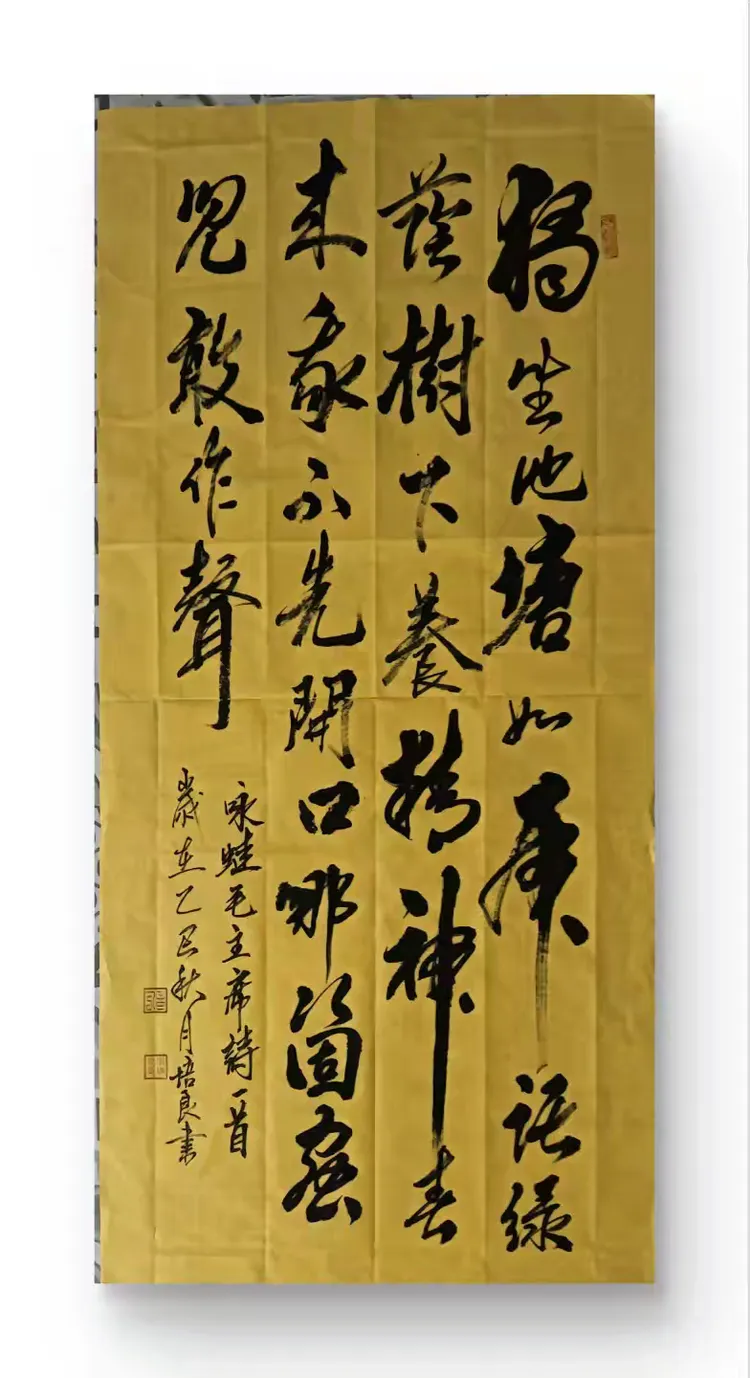 獨坐池塘如虎踞綠
蔭樹下養精神春
來我不先開口那箇蟲
兒敢作聲
咏蛙毛主席詩一首
歲在乙巳秋月培良書